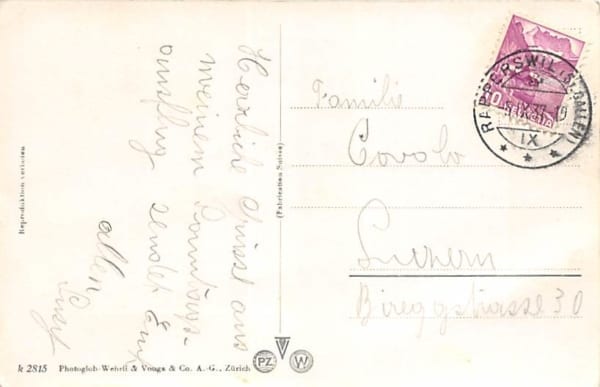 Herzliche Grüsse aus
meinem Sonntags-
ausflug sendet Euch
allen
Josef
Familie
Covolo
Luzern
Bireggstrasse 30
RAPPERSWIL (ST. GALLEN)
IX
10
HELVETIA
Reproduktion verboten
(Fabrication Suisse)
k 2815 Photoglob-Wehrli & Vouga & Co. A.-G., Zürich
PZ
W